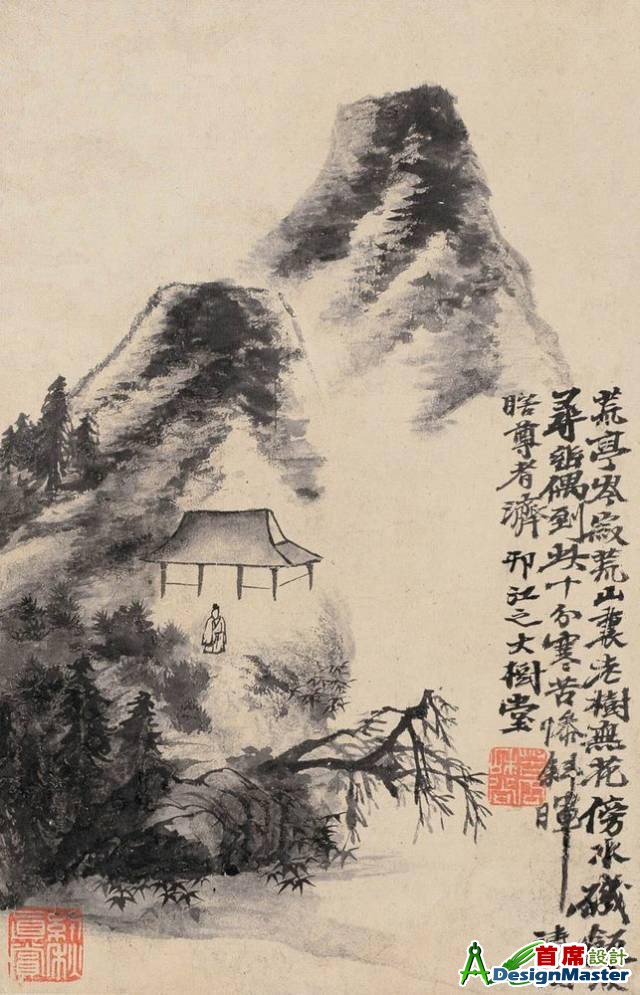 荒亭岑寂荒山裏老樹無花傍水磯
尋詩偶到此十分寒苦慘斜暉 清
瞎尊者濟 邗江之大樹堂
首席設計
DesignMaster